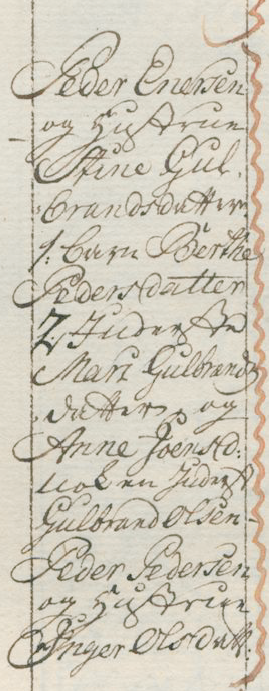 Peder Enersen
og Hustrue
Stine Gul,
brandsdatter
1: barn Berthe
Pedersdatter
2, Inderste
Mari Gulbrands
datter, og
Anne Joensd:
nok en Inderst
Gulbrand Olsen
Peder Pedersen
og Hustrue
Inger Olsdatt: